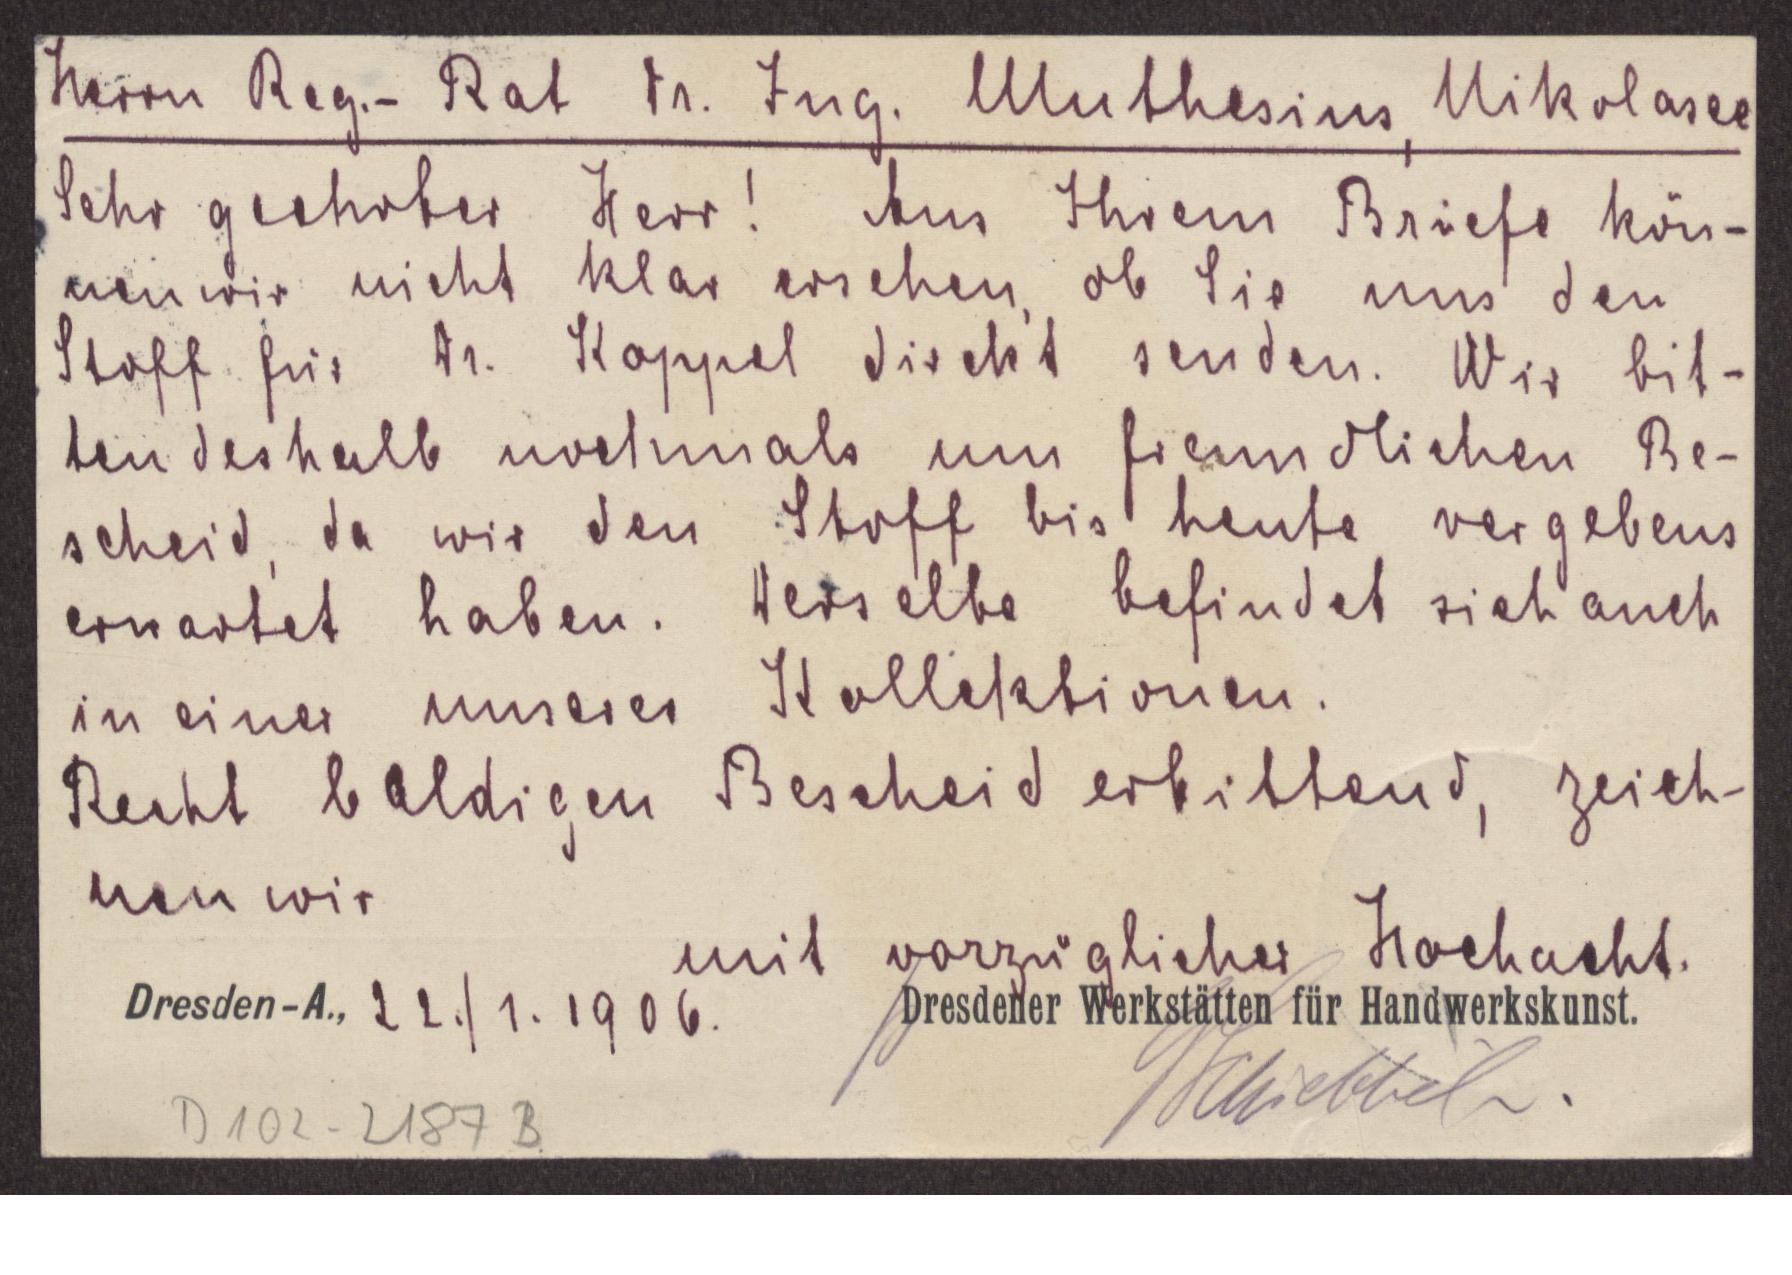 Herrn Reg.- Rat Dr. Ing. Muthesius, Nikolasee
Sehr geehrter Herr! Aus Ihrem Briefe kön-
nen wir nicht klar ersehen, ob Sie uns den
Stoff für Dr. Koppel direkt senden. Wir bit-
ten deshalb nochmals um freundlichen Be-
scheid, da wir den Stoff bis heute vergebens
erwartet haben. Derselbe befindet sich auch
in einer unserer Kollektionen.
Recht baldigen Bescheid erbittend, zeich-
nen wir
mit vorzüglicher Hochacht.
Dresden-A., 22./1. 1906.
Dresdener Werkstätten für Handwerkskunst.
D 102-2187 B